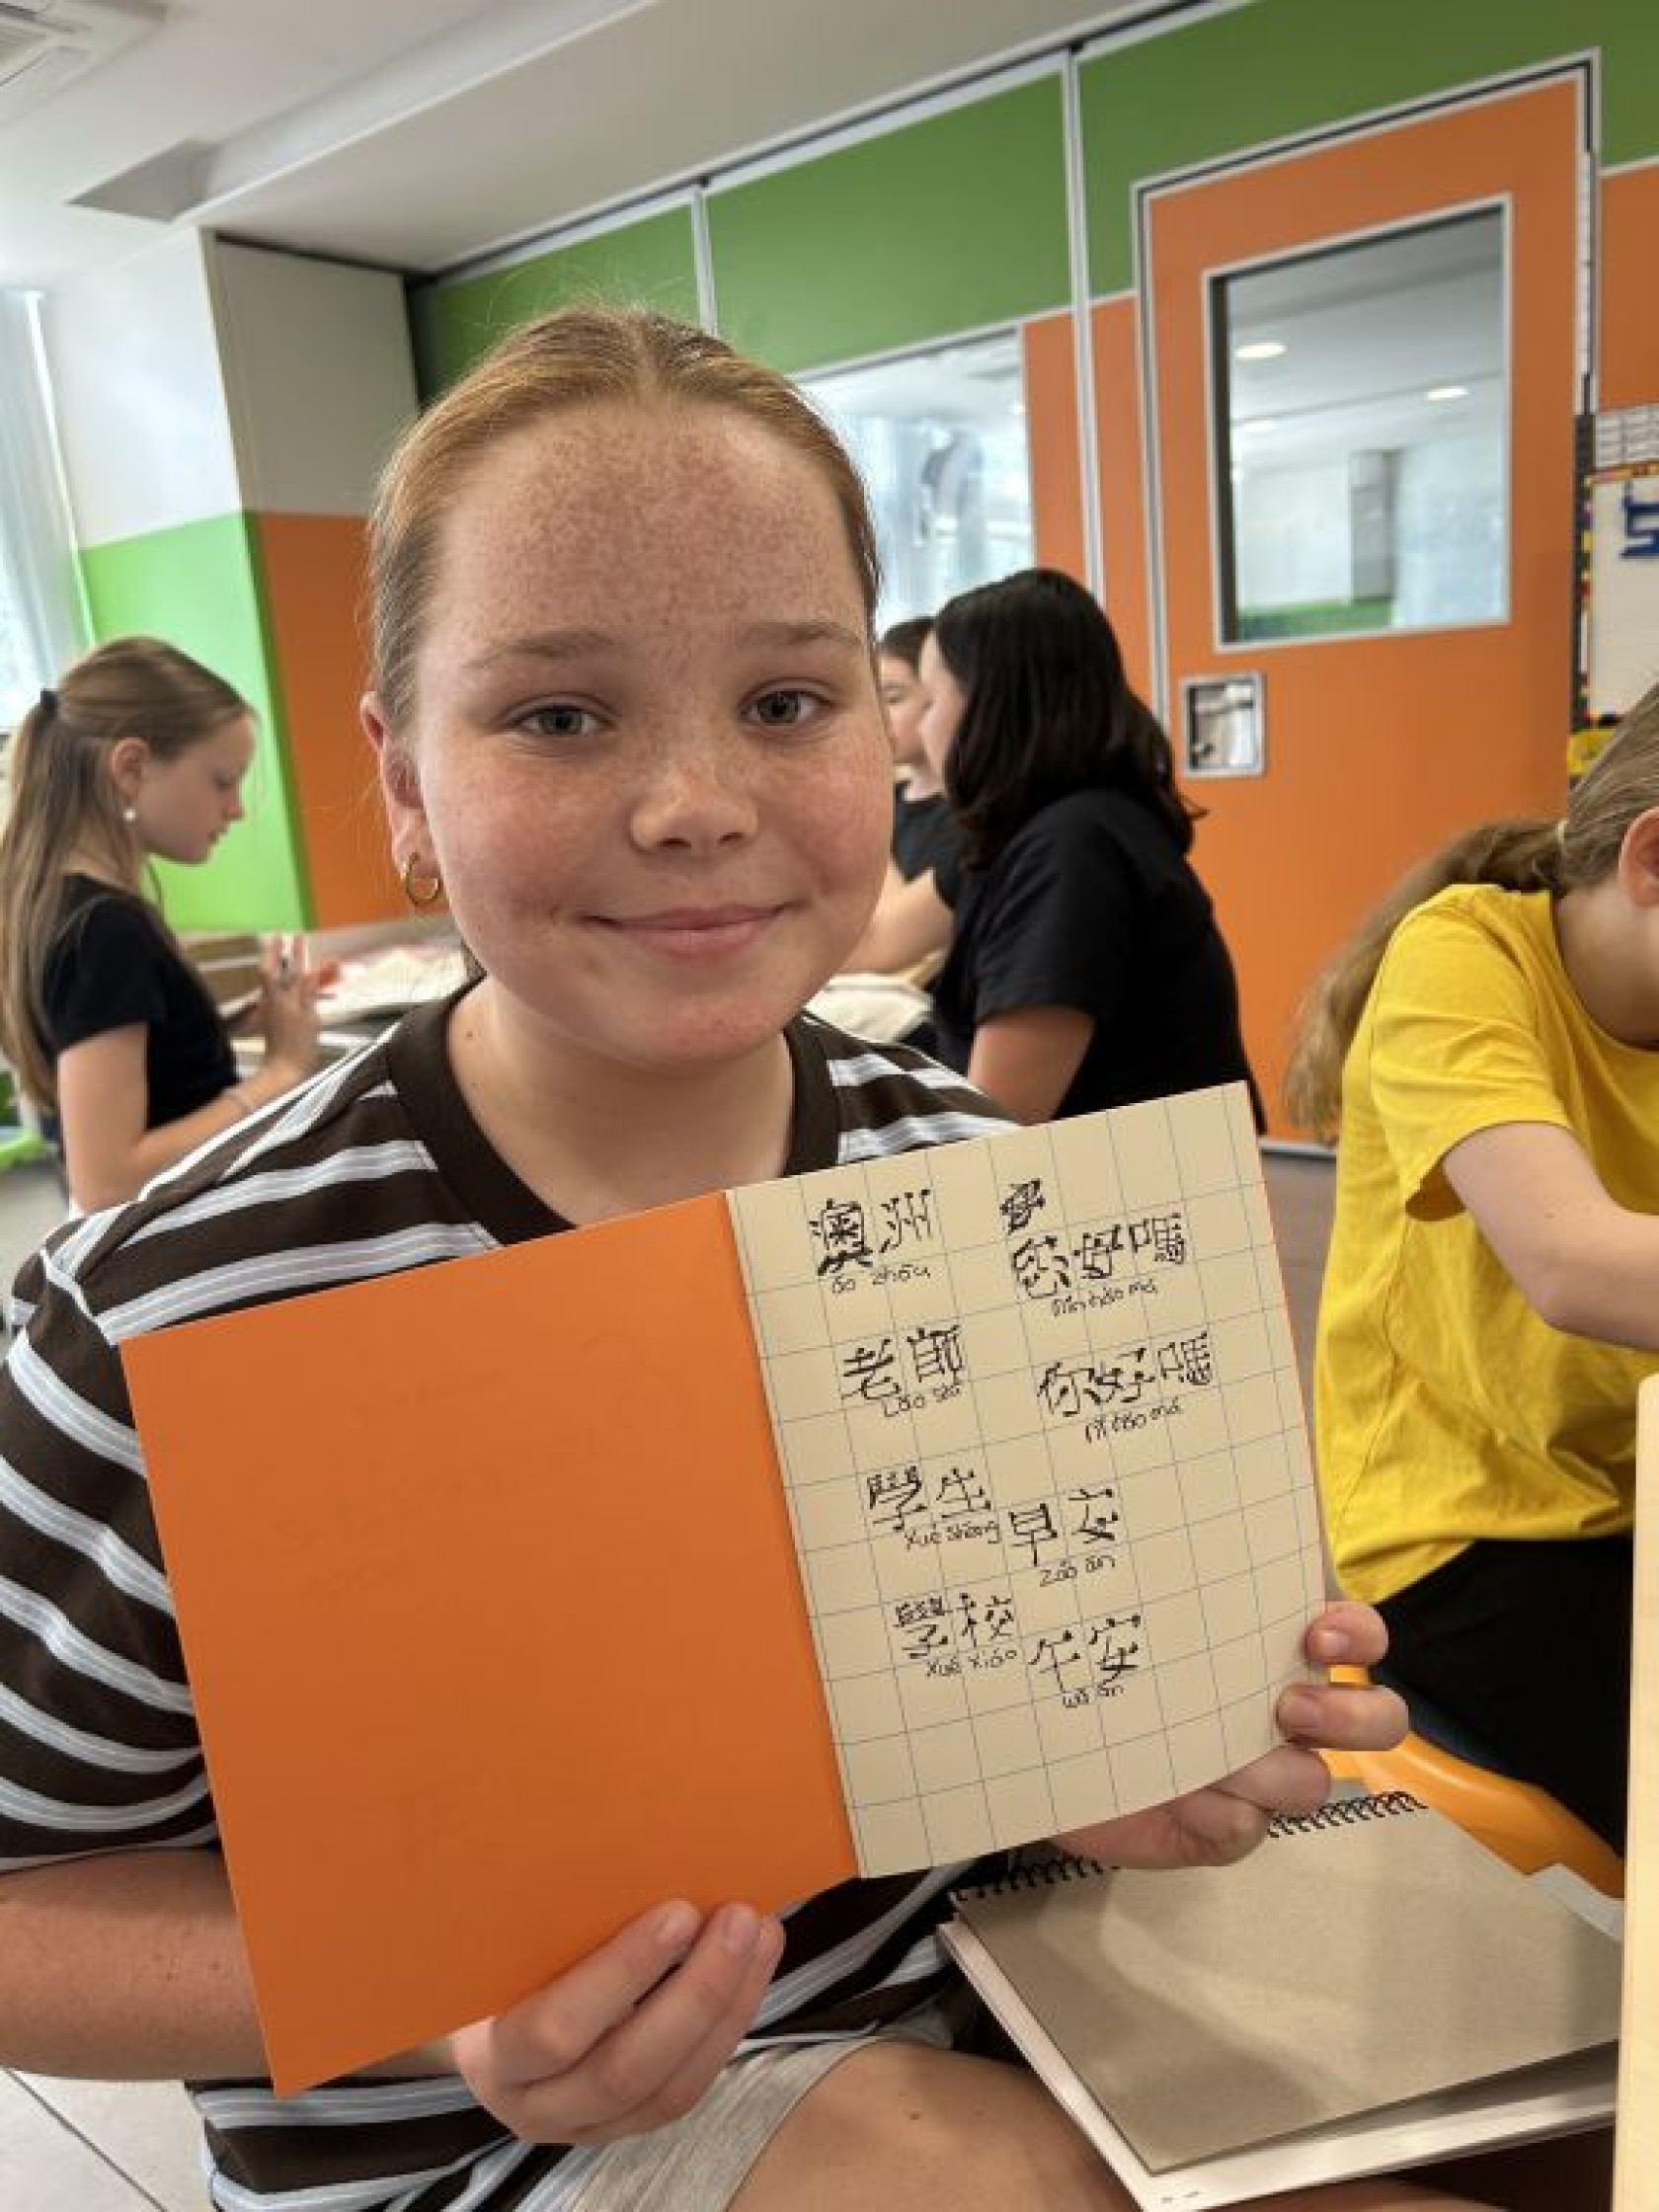 澳洲
ào zhōu
老師
Lǎo shī
學生
xué shēng
學校
xué xiào
您好嗎
nín hǎo má
你好嗎
nǐ hǎo má
早安
zǎo ān
午安
wǔ ān